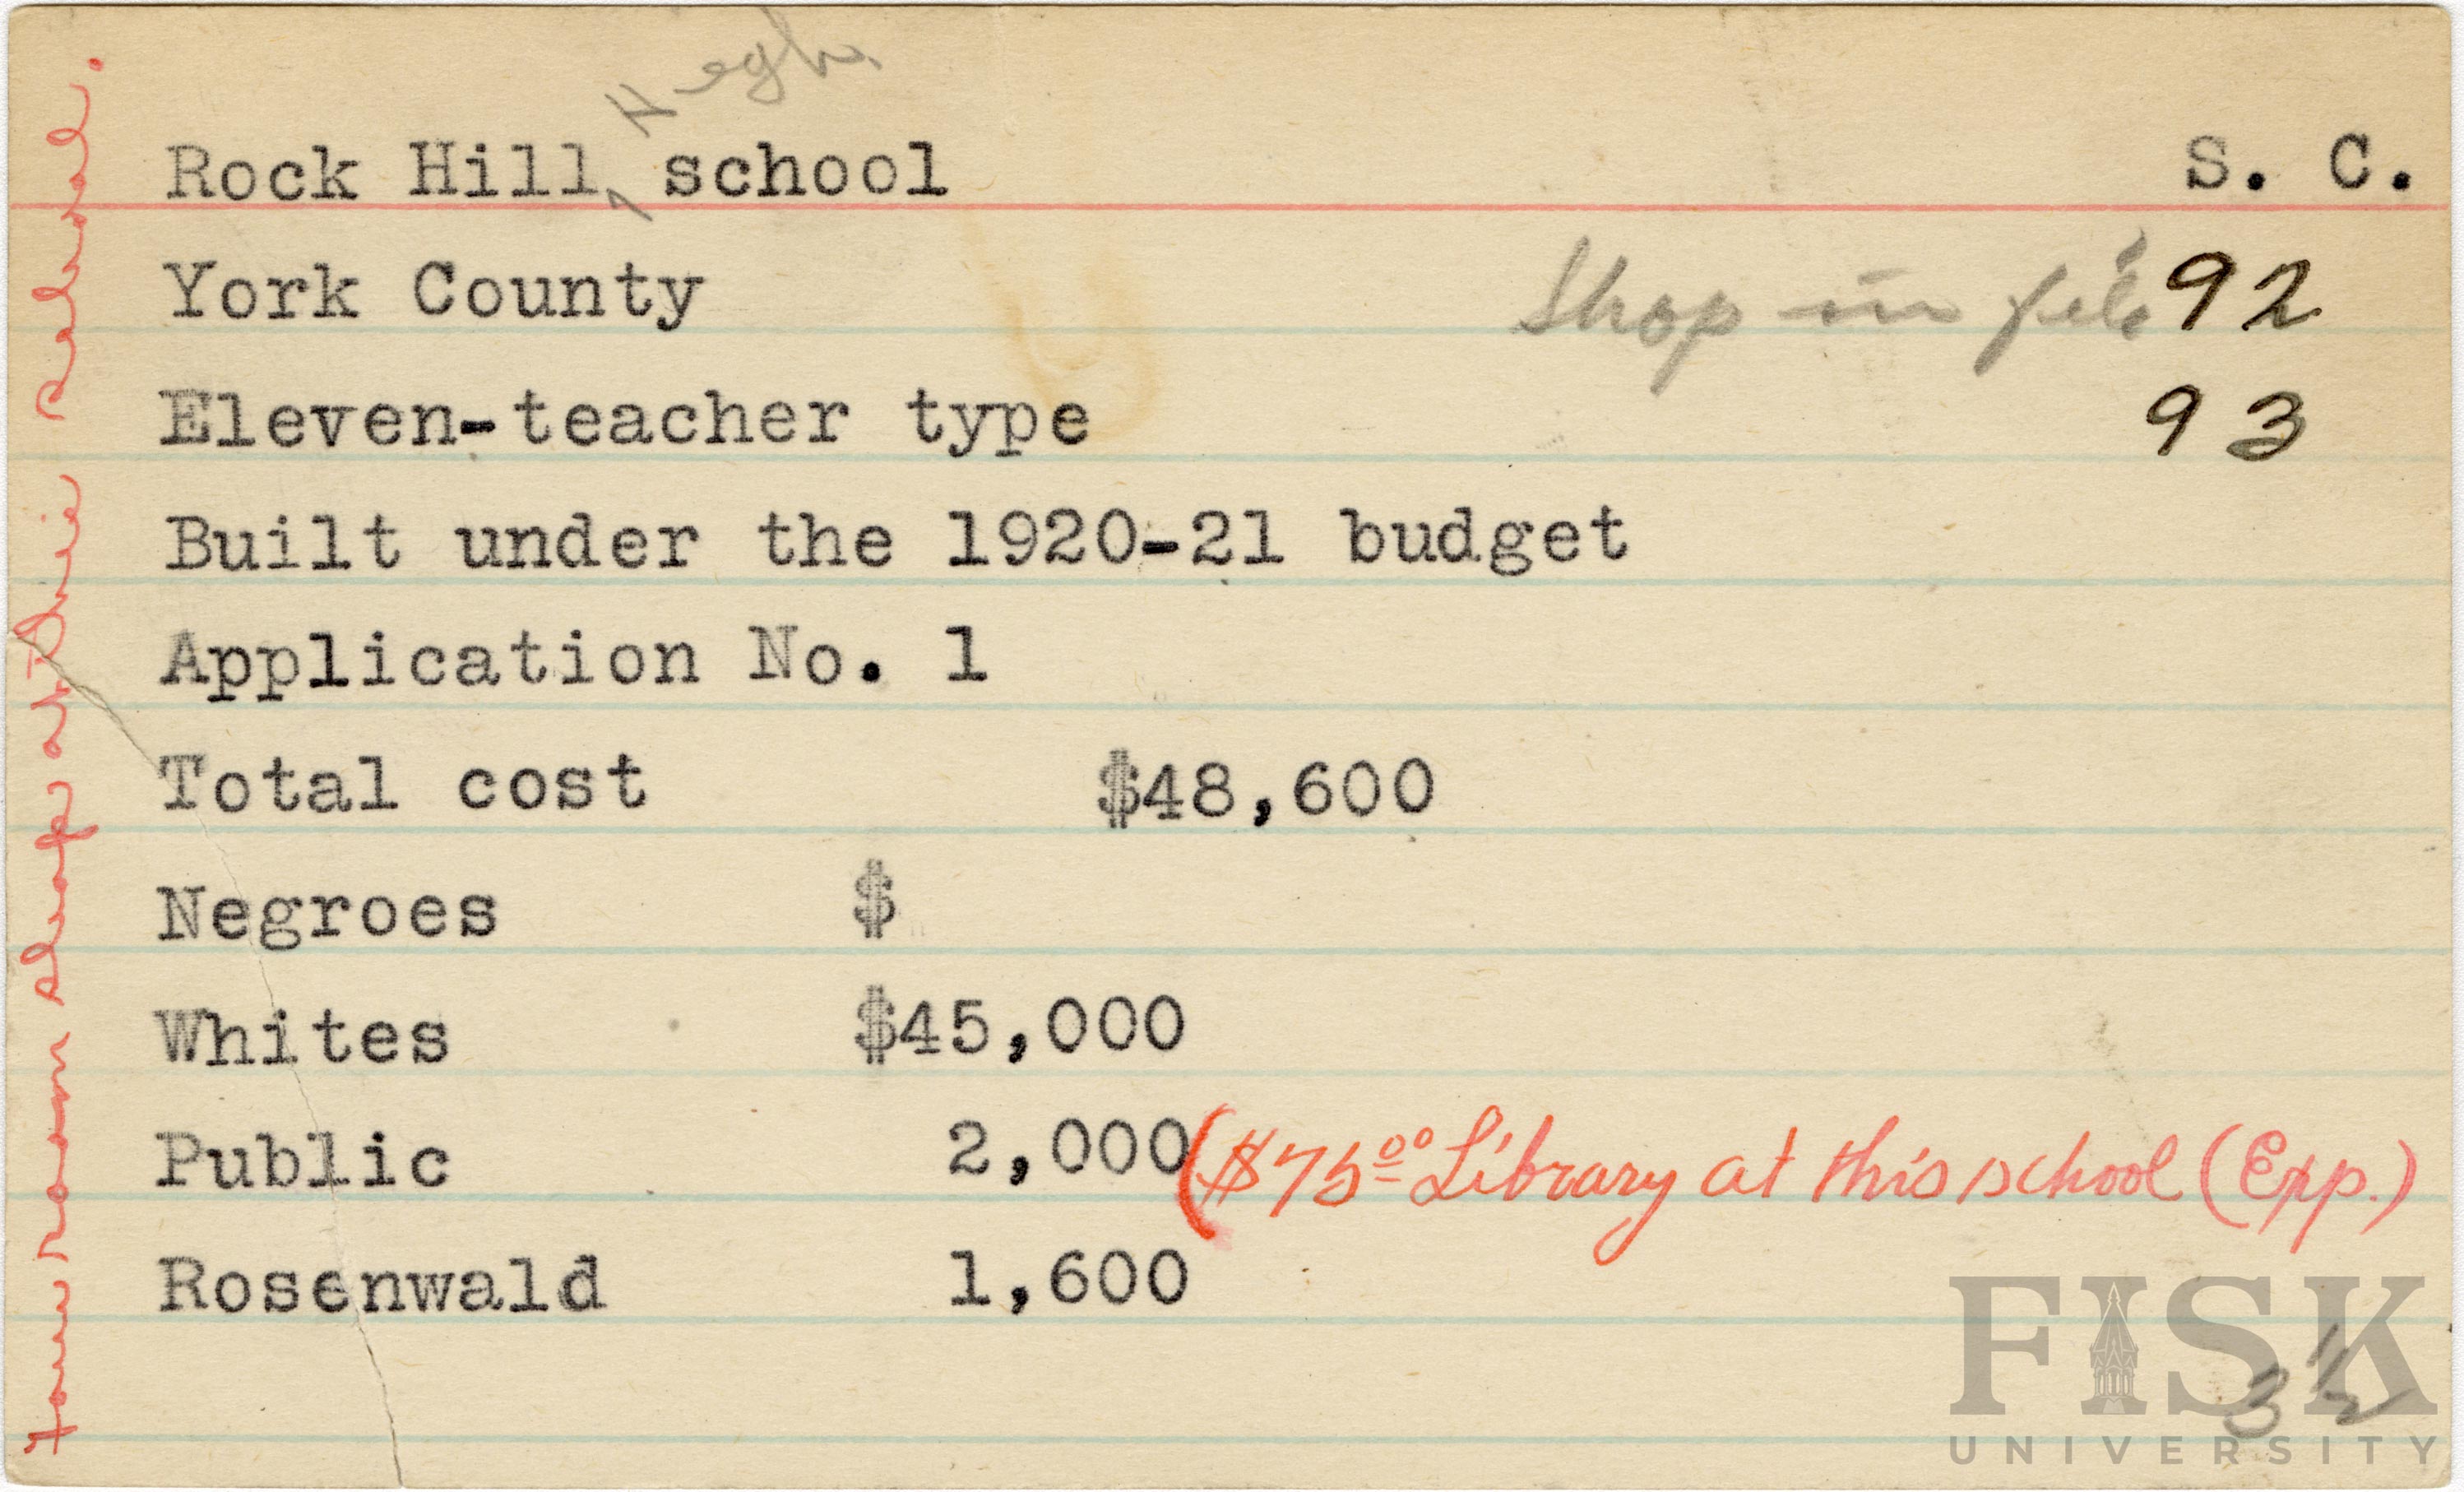 High
Rock Hill, school S. C.
York County Shop in file 92
Eleven-teacher type 93
Built under the 1920-21 budget
Application No. 1
Total cost $48,600
Negroes $
Whites $45,000
Public 2,000 ($75.00 Library at this school (Exp.)
Rosenwald 1,600
3 1/2
Four room shop at this school.
FISK
UNIVERSITY